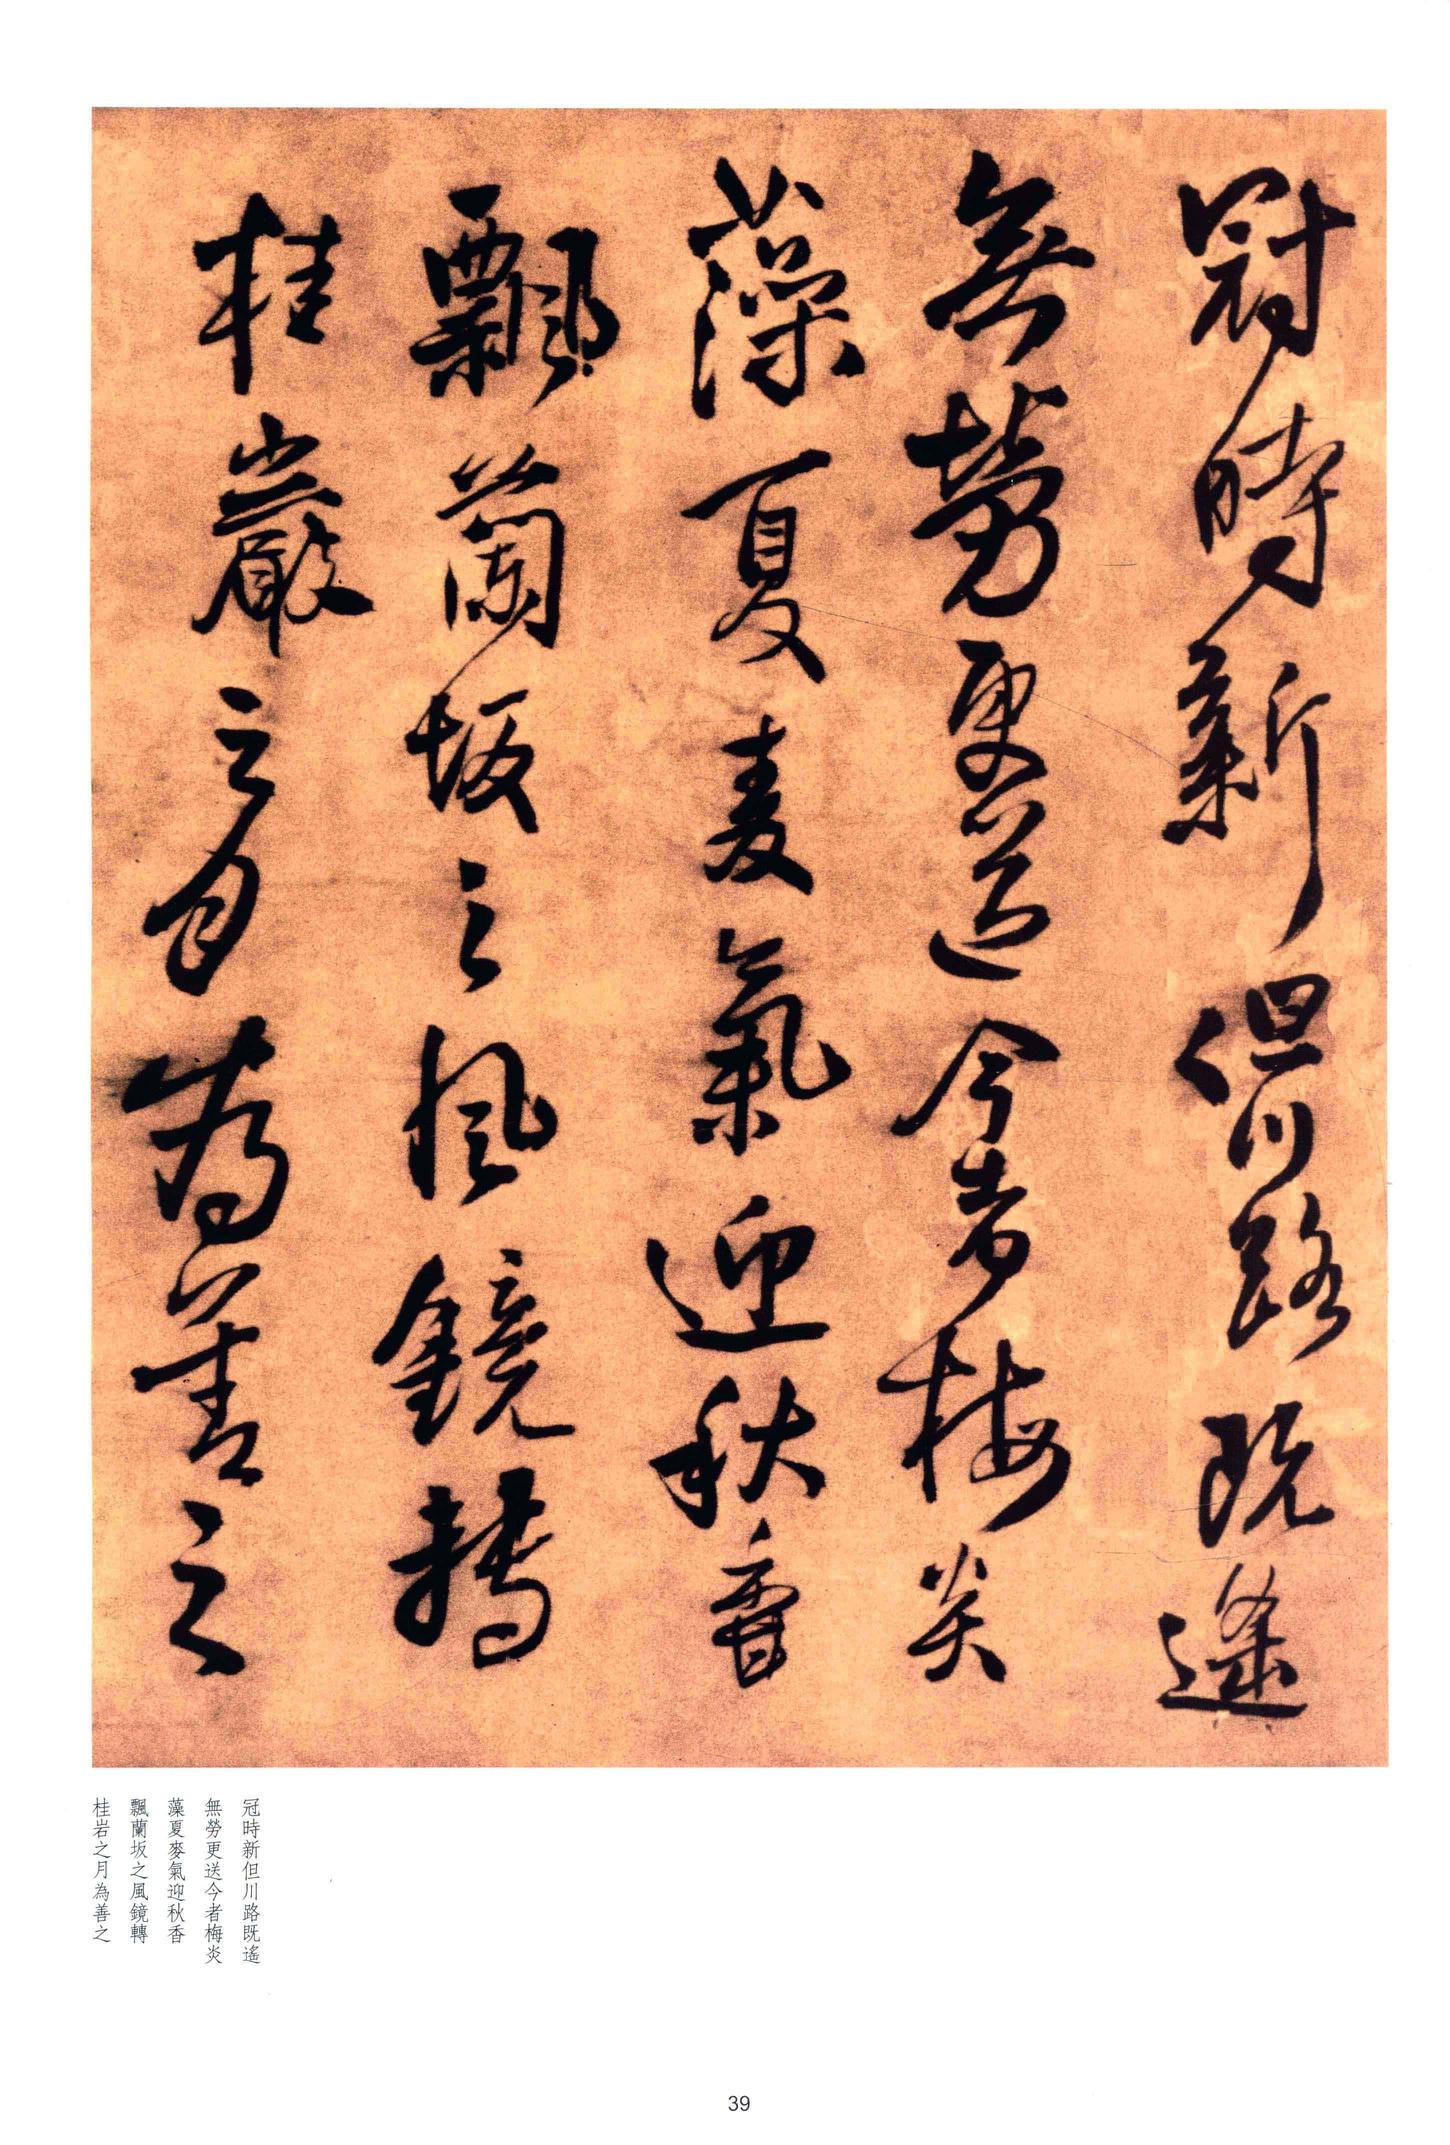 冠時新但川路既遙
無勞更送今者梅炎
藻夏麥氣迎秋香
飄蘭坂之風鏡轉
桂巖之月為善之
冠時新但川路既遙
無勞更送今者梅炎
藻夏麥氣迎秋香
飄蘭坂之風鏡轉
桂岩之月為善之
39